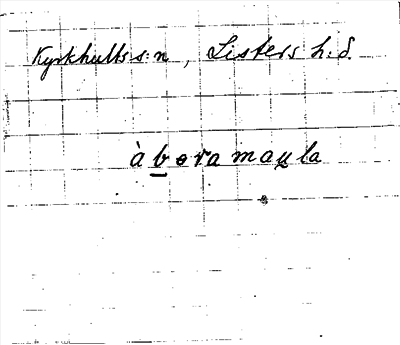 Kyrkhults s:n, Listers h:d.
àbera maula